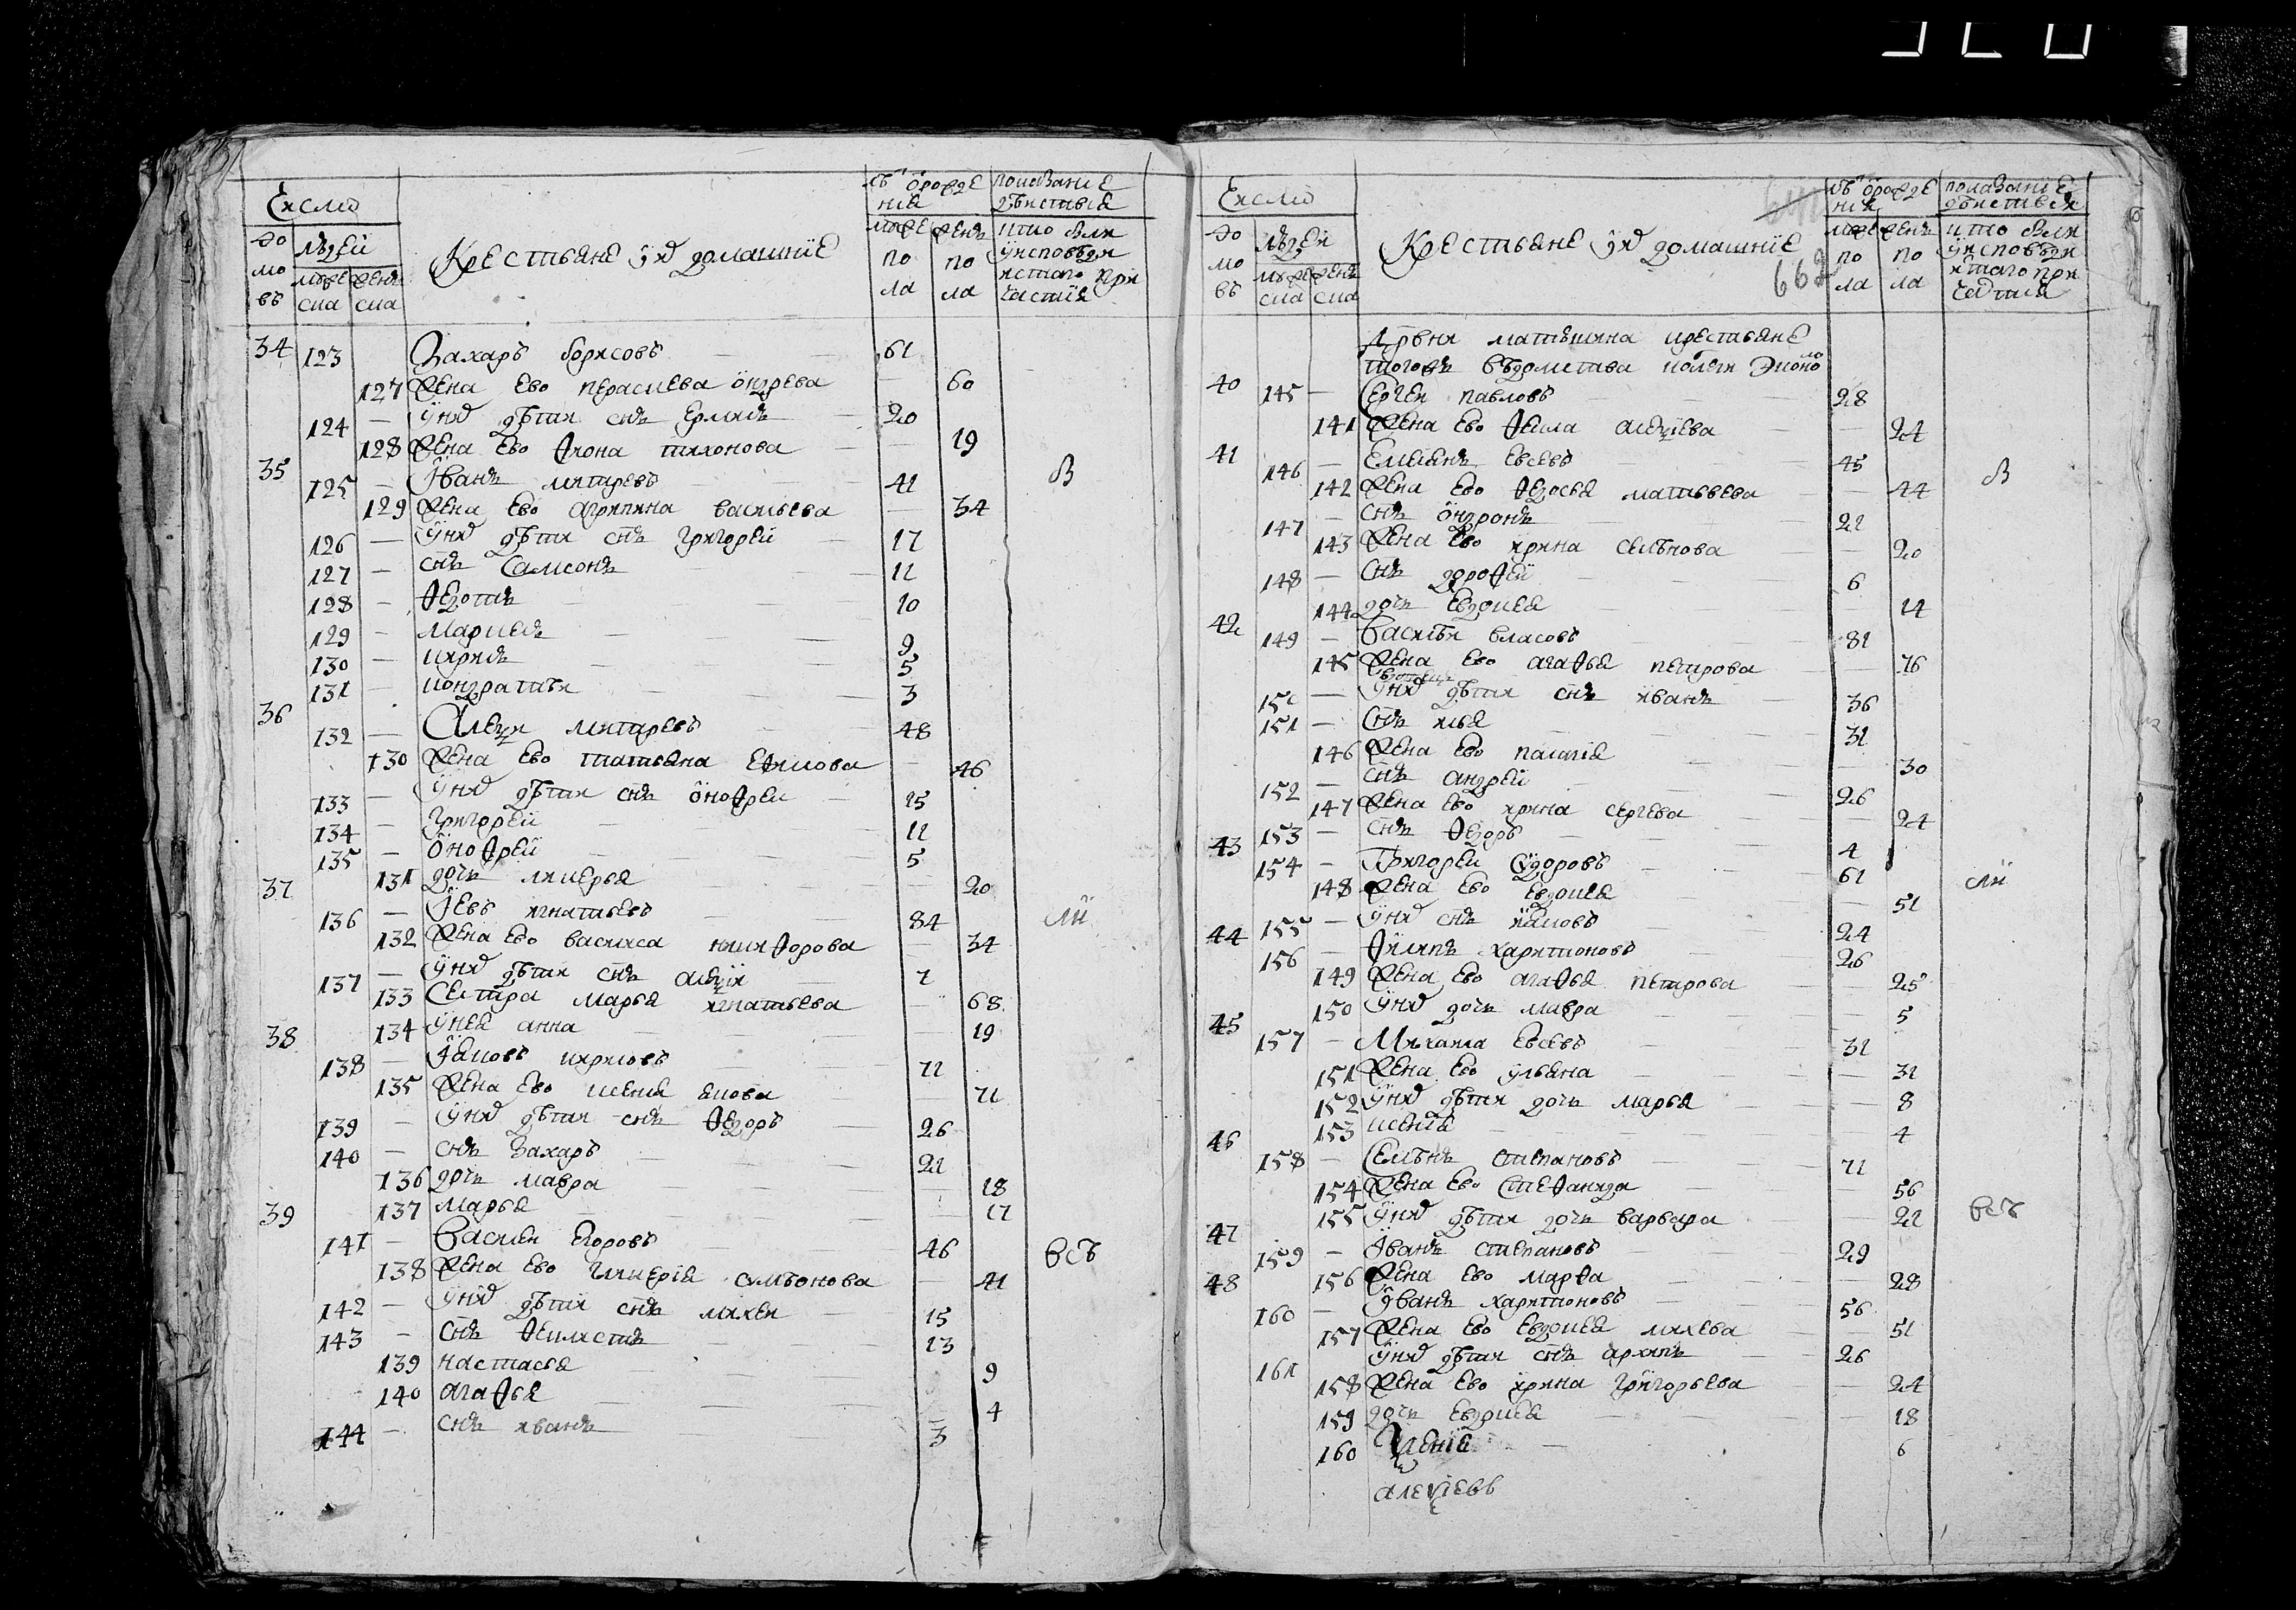 Число
до мо въ
людей
муже ска
женс ска
Крестьяне и их домашние
лѣт о рожде ния
муже по ла
женс по ла
показание действия
кто был у исповеди и стаго при частия
34 123 Захаръ борисовъ 61
127 Жена ево перасиева ондрева 60
124 У них дѣти снъ Ермилъ 20
128 Жена ево Афона тихонова 19
35 125 Иванъ титаревъ 41 В
129 Жена ево агрипина васильева 34
126 У них дѣти снъ григорей 17
127 снъ Самсонъ 11
128 Федотъ 10
129 Маркелъ 9
130 кирилъ 5
131 кондратьи 3
36 132 Алеѯи титаревъ 48
130 Жена ево татьяна Ефимова 46
133 У них дѣти снъ Онофреи 15
134 Григорей 11
135 Онофрей 5
131 дочь ликерья 20
37 136 Иевъ игнатьевъ 84
132 Жена ево васлиса никифорова 34
137 У них дѣти снъ алеѯѣй 7
133 Сестра марья игнатьева 68
134 У нея анна 19
38 138 Яковъ кириловъ 71
135 Жена ево ксения якова 71
139 У них дѣти снъ Федоръ 26
140 снъ Захаръ 21
136 дочь мавра 18
137 Марья 17
39 141 Василеи Егоровъ 46 всѣ
138 Жена ево гликерия симеонова 41
142 У них дѣти снъ михеи 15
143 снъ Феклистъ 13
139 настасья 9
140 агафья 4
144 снъ иванъ 3
Число
до мо въ
людей
муже ска
женс ска
Крестьяне и их домашние
662
лѣт о рожде ния
муже по ла
женс по ла
показание действия
кто был у исповеди и стаго при частия
Дрвни матюкина крестьяне
тогожъ вѣдомства колеги Эконо
40 145 Сергеи павловъ 28
141 Жена ево Фекла алеѯѣева 24
41 146 Емельянъ Евсевъ 45 В
142 Жена ево Федосья матвеева 44
147 снъ ондронъ 21
143 Жена ево ирина семѣнова 20
148 Снъ дорофей 6
144 дочь Евдокея 14
42 149 Василеи власовъ 81
145 Жена ево агафья петрова 76
150 У них дѣти снъ иванъ 36
151 Снъ илья 31
146 Жена ево палагия 30
152 снъ андрей 26
147 Жена ево ирина сергева 24
153 снъ Федоръ 4
43 154 Григореи Сидоровъ 61
148 Жена ево Евдокея 51
155 У них снъ яковъ 24
44 156 Филипъ харитоновъ 26
149 Жена ево агафья петрова 25
150 У них дочь мавра 5
45 157 Михаила Евсевъ 31
151 Жена ево ульяна 31
152 У них дѣти дочь марья 8
153 ксения 4
46 158 Семѣнъ степановъ 71
154 Жена ево стефанида 56
155 У них дѣти дочь варвара 21 всѣ
47 159 Иванъ степановъ 29
156 Жена ево марфа 28
48 160 Иванъ харитоновъ 56
157 Жена ево Евдокея михева 51
161 У них дѣти снъ архипъ 26
158 Жена ево ирина григорьева 24
159 дочь Евдокея 18
160 ксения 6
алеѯѣевъ